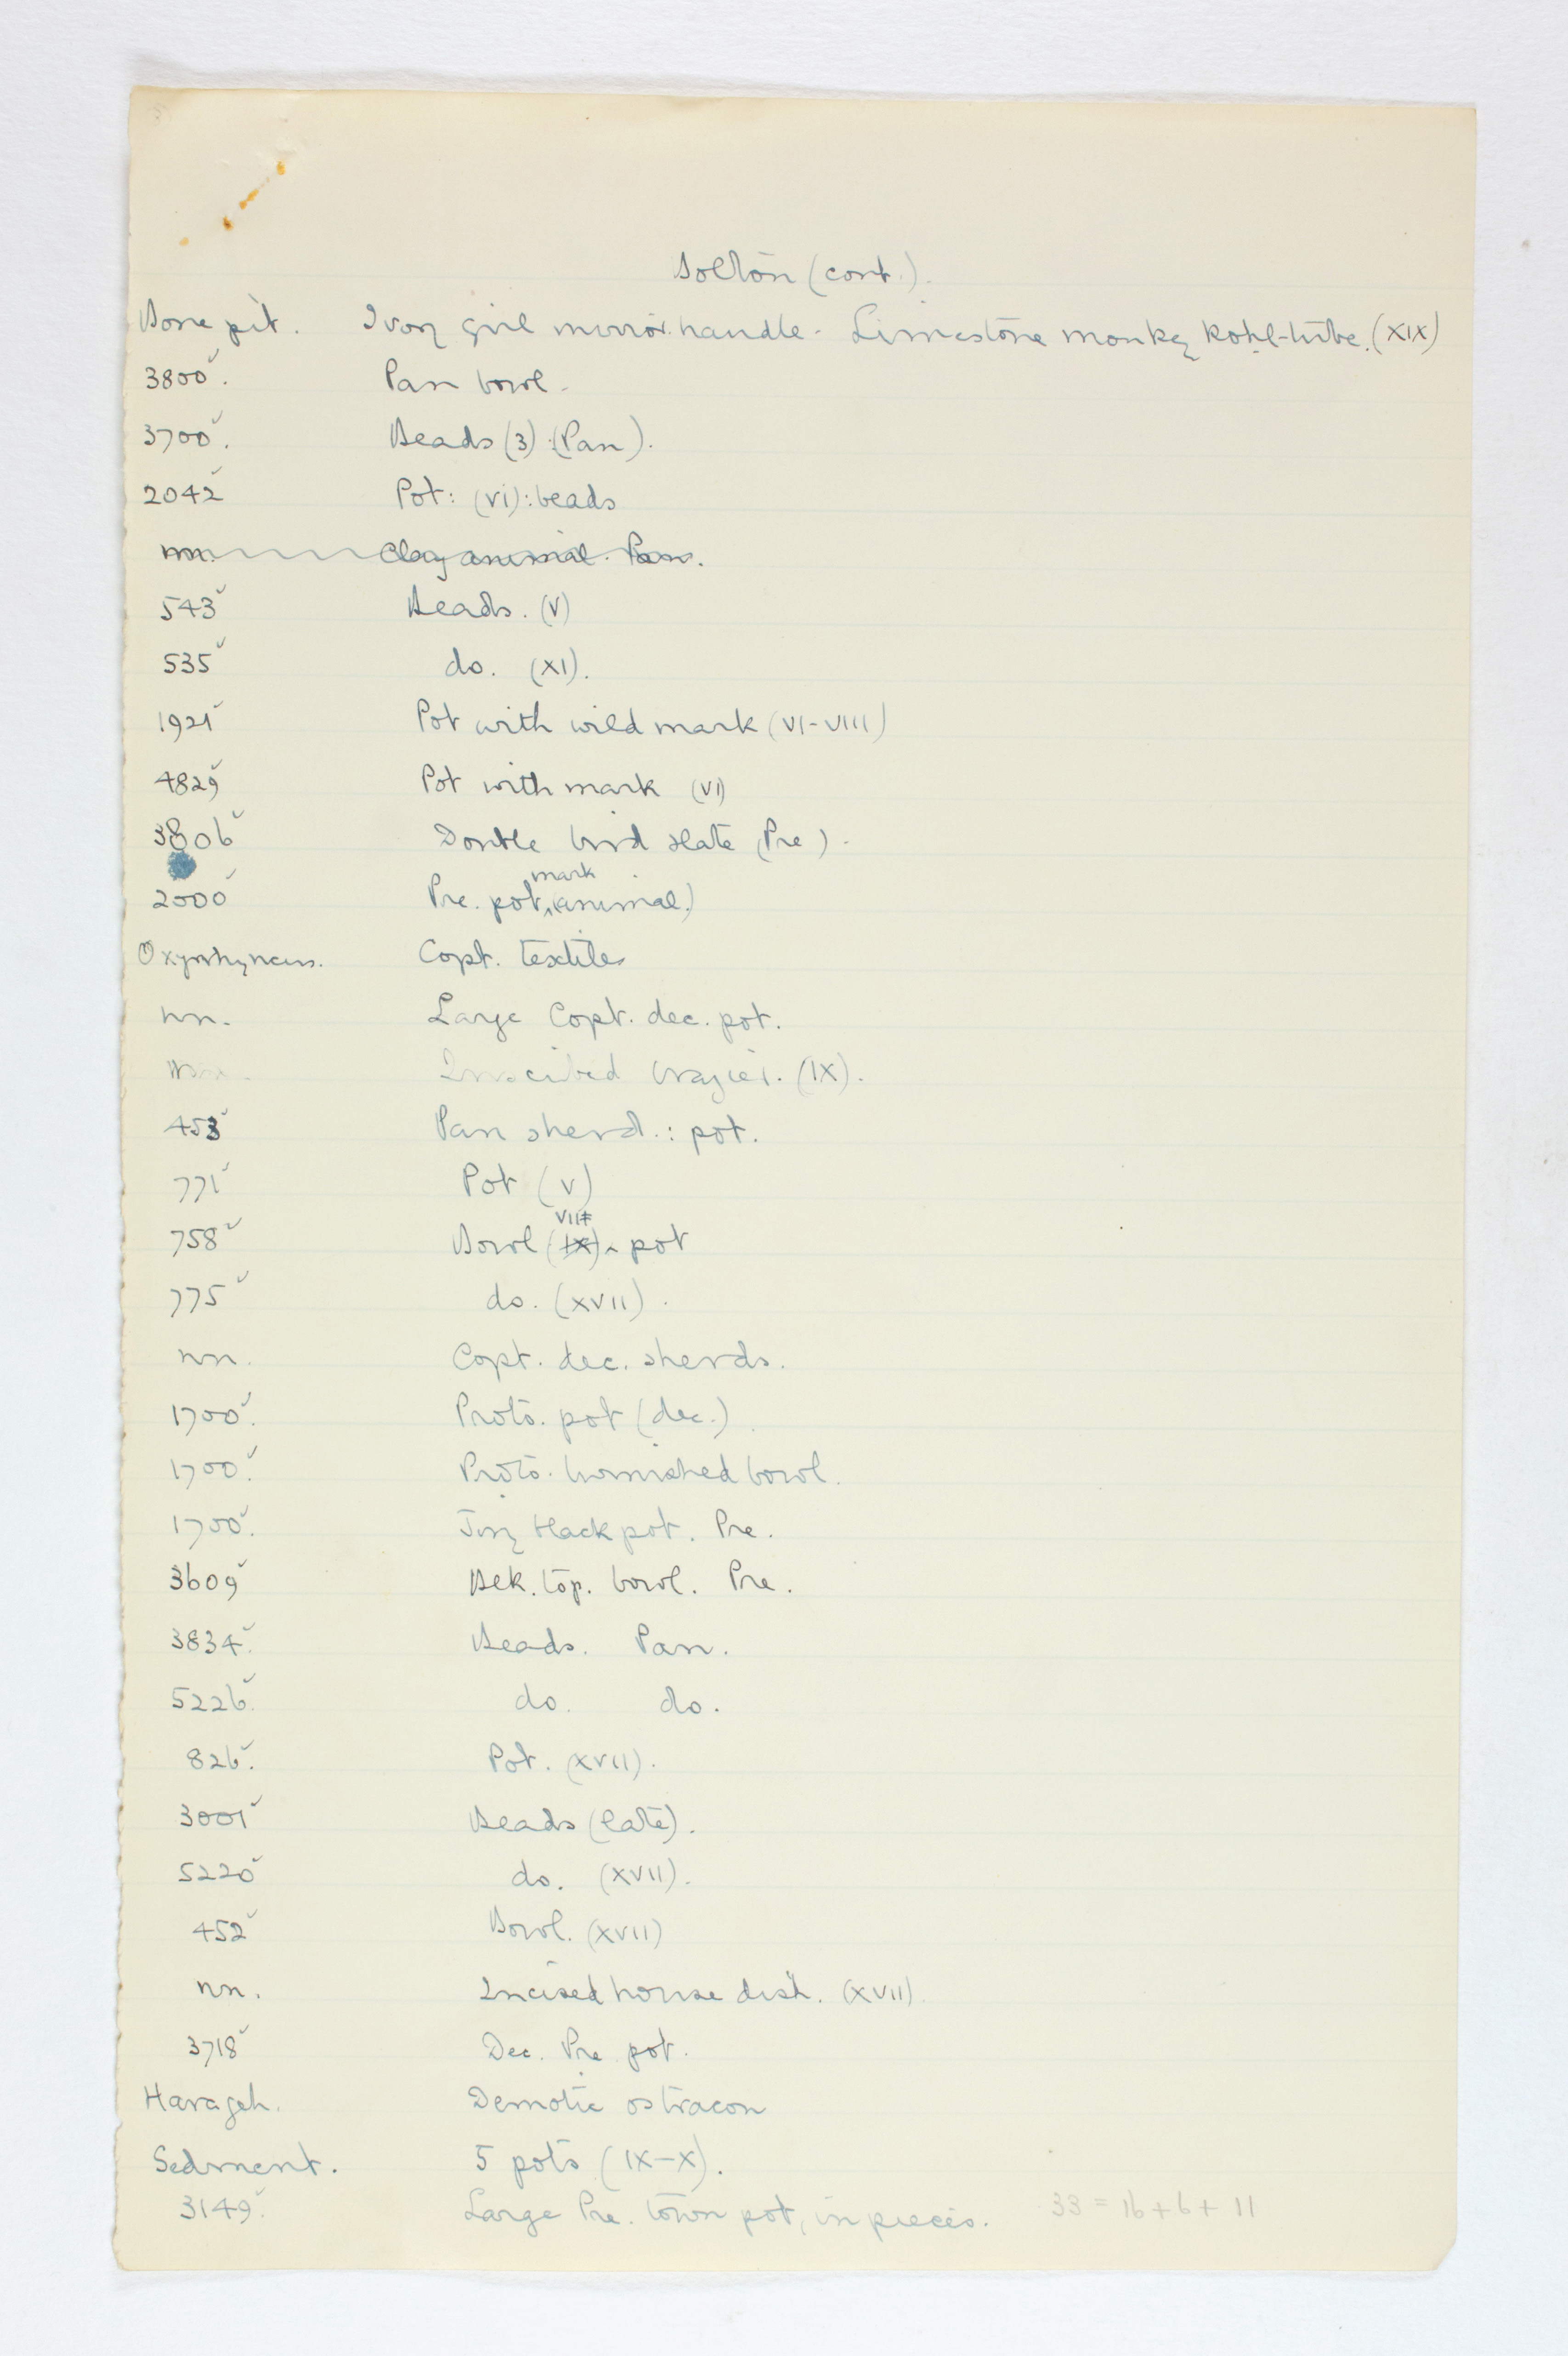 Bolton (cont.).
Bone pit. Ivory girl mirror handle - Limestone monkey kohl-tube. (XIX)
3800. Pan bowl -
3700. Beads (3) (Pan).
2042 Pot: (VI): beads
nn. Clay animal. Pan.
543 Beads. (V)
535 do. (XI).
1921 Pot with wild mark (VI-VIII)
4829 Pot with mark (VI)
3806 Double bird slate (Pre).
mark
2000 Pre. pot (animal)
Oxyrhyncus. Copt. textiles
nn. Large Copt. dec. pot.
nn. Inscribed brazier. (IX).
453 Pan sherd.: pot.
771 Pot (V)
VII
758 Bowl (IX) pot
775 do. (XVII).
nn. Copt. dec. sherds.
1700. Proto. pot (dec.)
1700. Proto. burnished bowl.
1700. Tiny black pot. Pre.
3609 Blk. top. bowl. Pre.
3834. Beads. Pan.
5226. do. do.
826. Pot. (XVII).
3001 Beads (late).
5220 do. (XVII).
452 Bowl. (XVII)
nn. Incised house dish. (XVII).
3718 Dec. Pre pot.
Harageh. Demotic ostracon
Sedment. 5 pots (IX-X).
3149. Large Pre. town pot, in pieces. 33 = 16 + 6 + 11